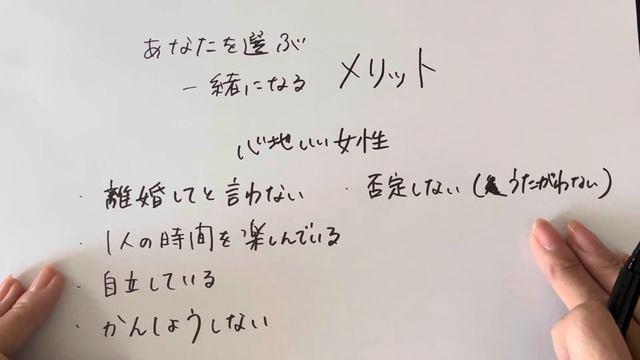 あなたを選ぶ
一緒になる メリット
心地いい女性
・離婚してと言わない ・否定しない(うたがわない)
・1人の時間を楽しんでいる
・自立している
・かんしょうしない